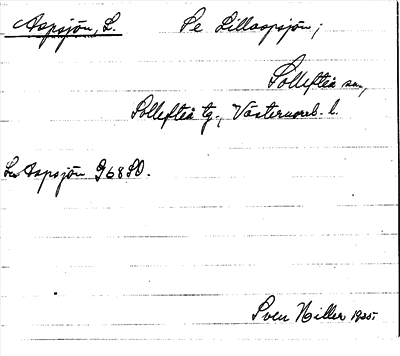 Aspsjön, L. Se Lillaspsjön;
Sollefteå sn.,
Sollefteå tg., Västernorrl. l.
Aspsjön G68SO.
Sven Hiller 1925